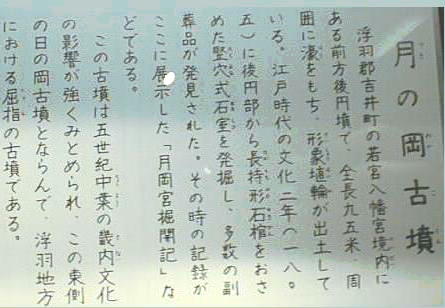 月の岡古墳
浮羽郡吉井町の若宮八幡宮境内に
ある前方後円墳で、全長九五米、周
囲に濠をもち、形象埴輪が出土して
いる。江戸時代の文化二年(一八〇
五)に後円部から長持形石棺をおさ
めた竪穴式石室を発掘し、多数の副
葬品が発見された。その時の記録が
ここに展示した「月岡宮掘開記」な
どである。
この古墳は五世紀中葉の畿内文化
の影響が強くみとめられ、この東側
の日の岡古墳とならんで、浮羽地方
における屈指の古墳である。